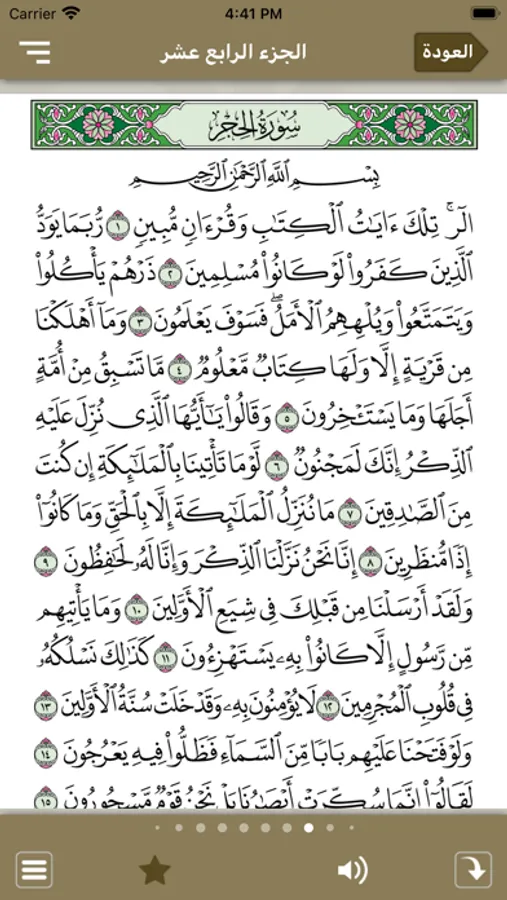 Carrier 4:41 PM
الجزء الرابع عشر العودة
سُورَةُ الحِجْرِ
بِسْمِ ٱللَّهِ ٱلرَّحْمَٰنِ ٱلرَّحِيمِ
الٓر ۚ تِلْكَ ءَايَٰتُ ٱلْكِتَٰبِ وَقُرْءَانٍ مُّبِينٍ ١ رُّبَمَا يَوَدُّ
ٱلَّذِينَ كَفَرُوا۟ لَوْ كَانُوا۟ مُسْلِمِينَ ٢ ذَرْهُمْ يَأْكُلُوا۟
وَيَتَمَتَّعُوا۟ وَيُلْهِهِمُ ٱلْأَمَلُ ۖ فَسَوْفَ يَعْلَمُونَ ٣ وَمَآ أَهْلَكْنَا
مِن قَرْيَةٍ إِلَّا وَلَهَا كِتَابٌ مَّعْلُومٌ ٤ مَّا تَسْبِقُ مِنْ أُمَّةٍ
أَجَلَهَا وَمَا يَسْتَـْٔخِرُونَ ٥ وَقَالُوا۟ يَٰٓأَيُّهَا ٱلَّذِى نُزِّلَ عَلَيْهِ
ٱلذِّكْرُ إِنَّكَ لَمَجْنُونٌ ٦ لَّوْ مَا تَأْتِينَا بِٱلْمَلَٰٓئِكَةِ إِن كُنتَ
مِنَ ٱلصَّٰدِقِينَ ٧ مَا نُنَزِّلُ ٱلْمَلَٰٓئِكَةَ إِلَّا بِٱلْحَقِّ وَمَا كَانُوٓا۟
إِذًا مُّنظَرِينَ ٨ إِنَّا نَحْنُ نَزَّلْنَا ٱلذِّكْرَ وَإِنَّا لَهُۥ لَحَٰفِظُونَ ٩
وَلَقَدْ أَرْسَلْنَا مِن قَبْلِكَ فِى شِيَعِ ٱلْأَوَّلِينَ ١٠ وَمَا يَأْتِيهِم
مِّن رَّسُولٍ إِلَّا كَانُوا۟ بِهِۦ يَسْتَهْزِءُونَ ١١ كَذَٰلِكَ نَسْلُكُهُۥ
فِى قُلُوبِ ٱلْمُجْرِمِينَ ١٢ لَا يُؤْمِنُونَ بِهِۦ وَقَدْ خَلَتْ سُنَّةُ ٱلْأَوَّلِينَ ١٣
وَلَوْ فَتَحْنَا عَلَيْهِم بَابًا مِّنَ ٱلسَّمَآءِ فَظَلُّوا۟ فِيهِ يَعْرُجُونَ ١٤
لَقَالُوٓا۟ إِنَّمَا سُكِّرَتْ أَبْصَٰرُنَا بَلْ نَحْنُ قَوْمٌ مَّسْحُورُونَ ١٥